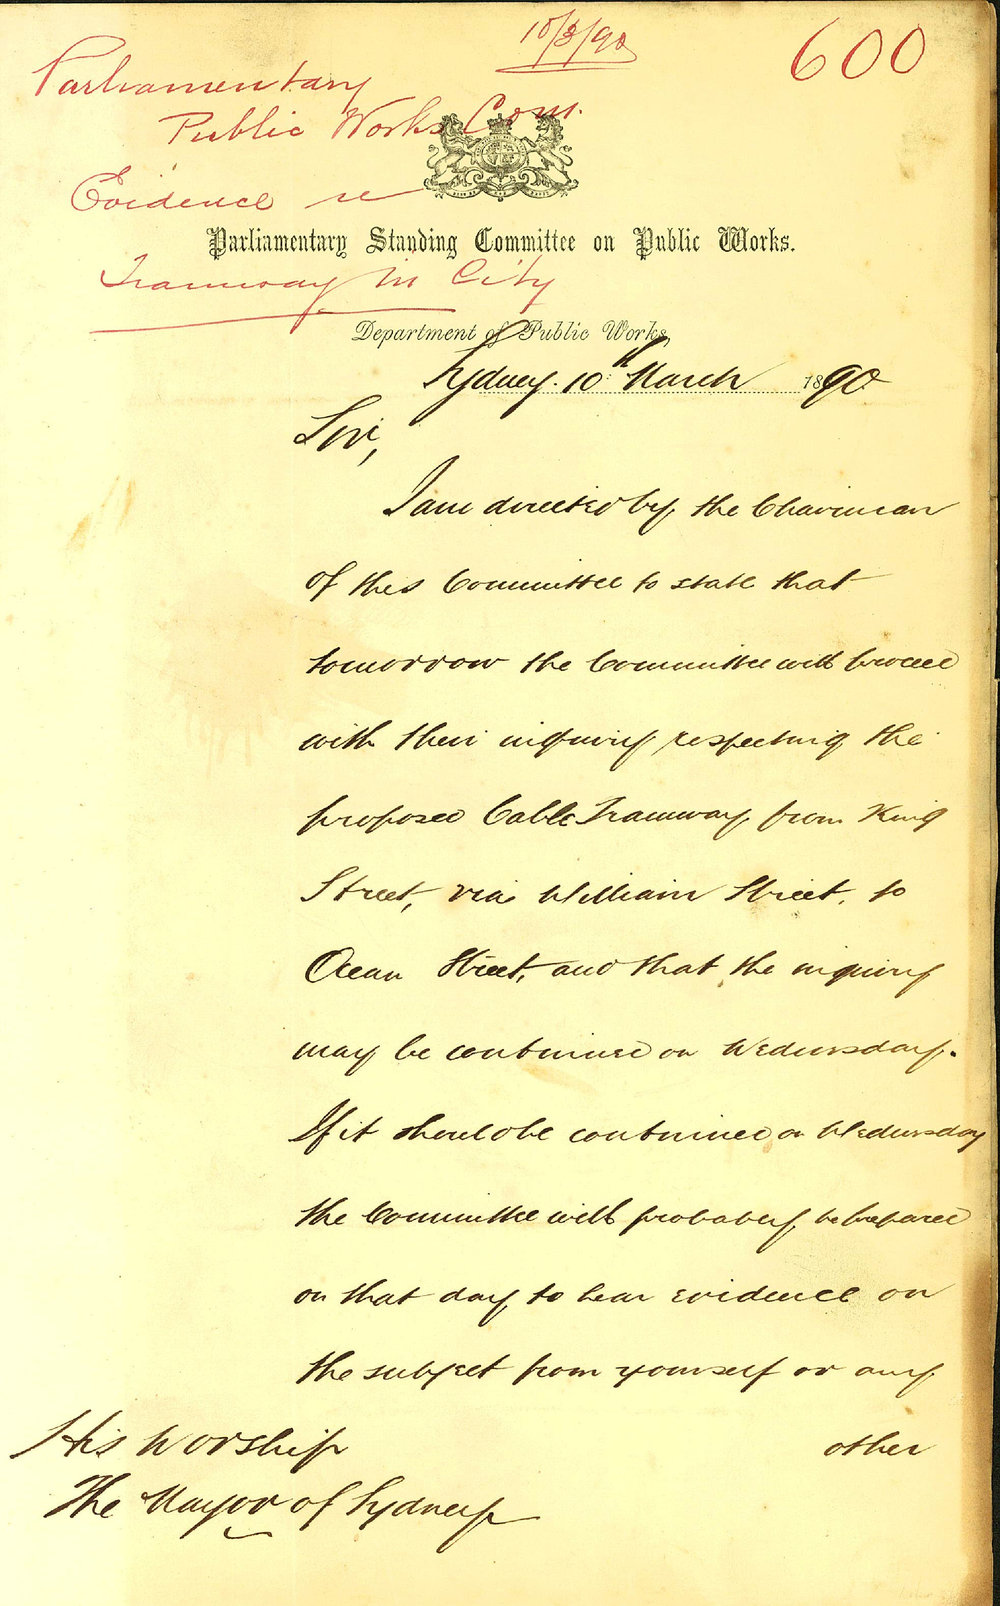 10/3/90
600
Parliamentary
Public Works Com.
Evidence re
Parliamentary Standing Committee on Public Works.
Tramway in City
Department of Public Works,
Sydney. 10th March 1890
Sir,
I am directed by the Chairman
of this Committee to state that
tomorrow the Committee will proceed
with their inquiry respecting the
proposed Cable Tramway from King
Street, via William Street, to
Ocean Street, and that the inquiry
may be continued on Wednesday.
If it should be continued on Wednesday
the Committee will probably be prepared
on that day to hear evidence on
the subject from yourself or any
other
His Worship
The Mayor of Sydney